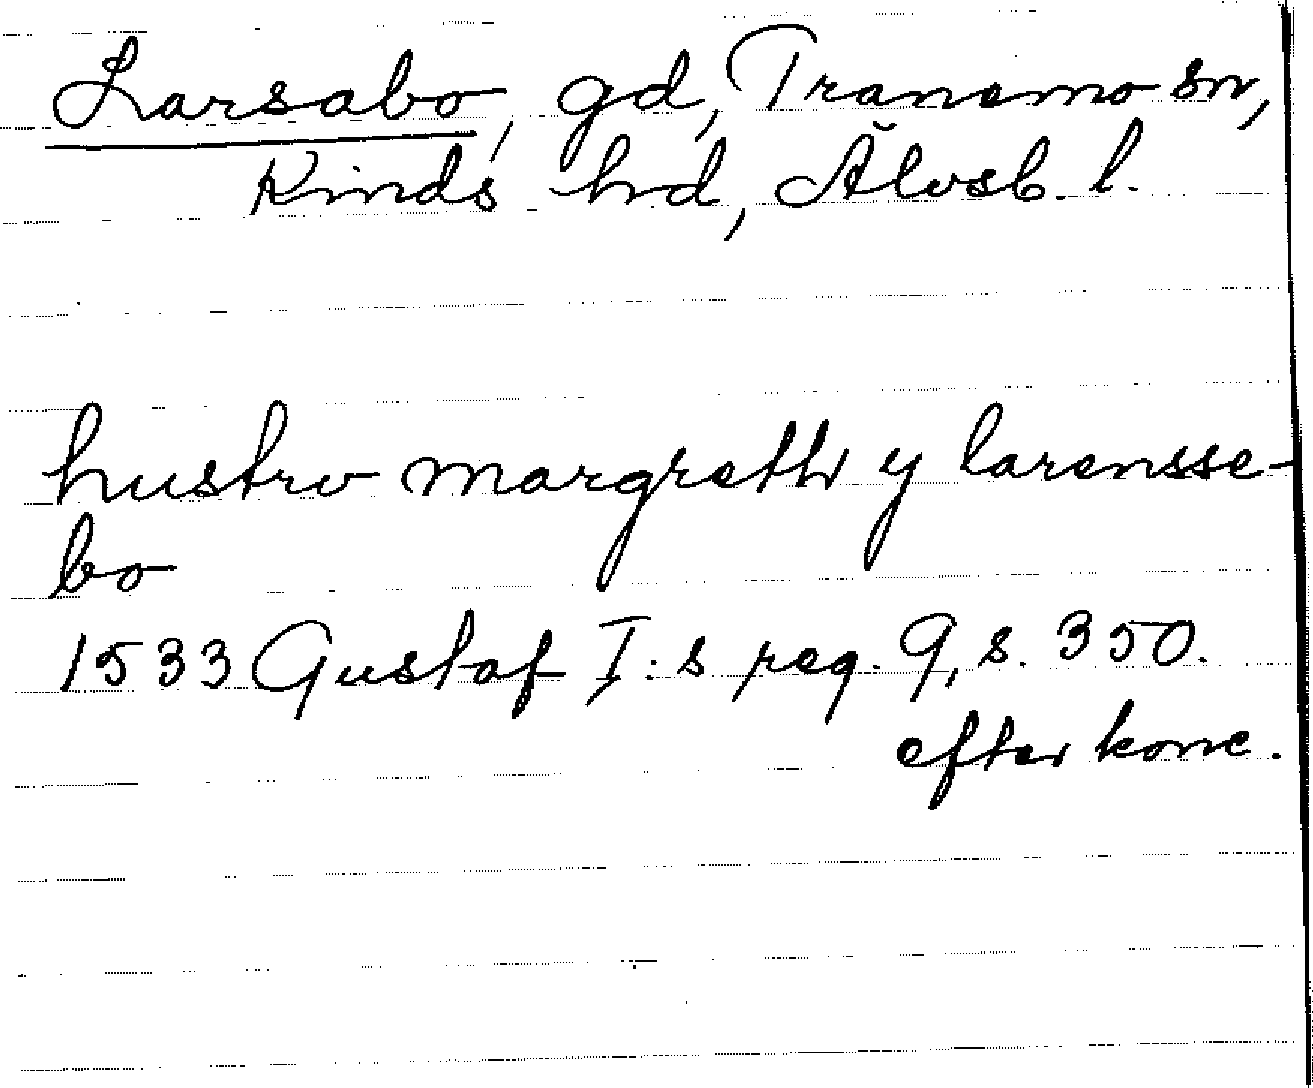 Larsabo, gd, Tranemo sn,
Kinds hd, Älvsb. l.
hustrv margreth y larensse-
bo
1533 Gustaf I:s reg. 9, s. 350.
efter konc.